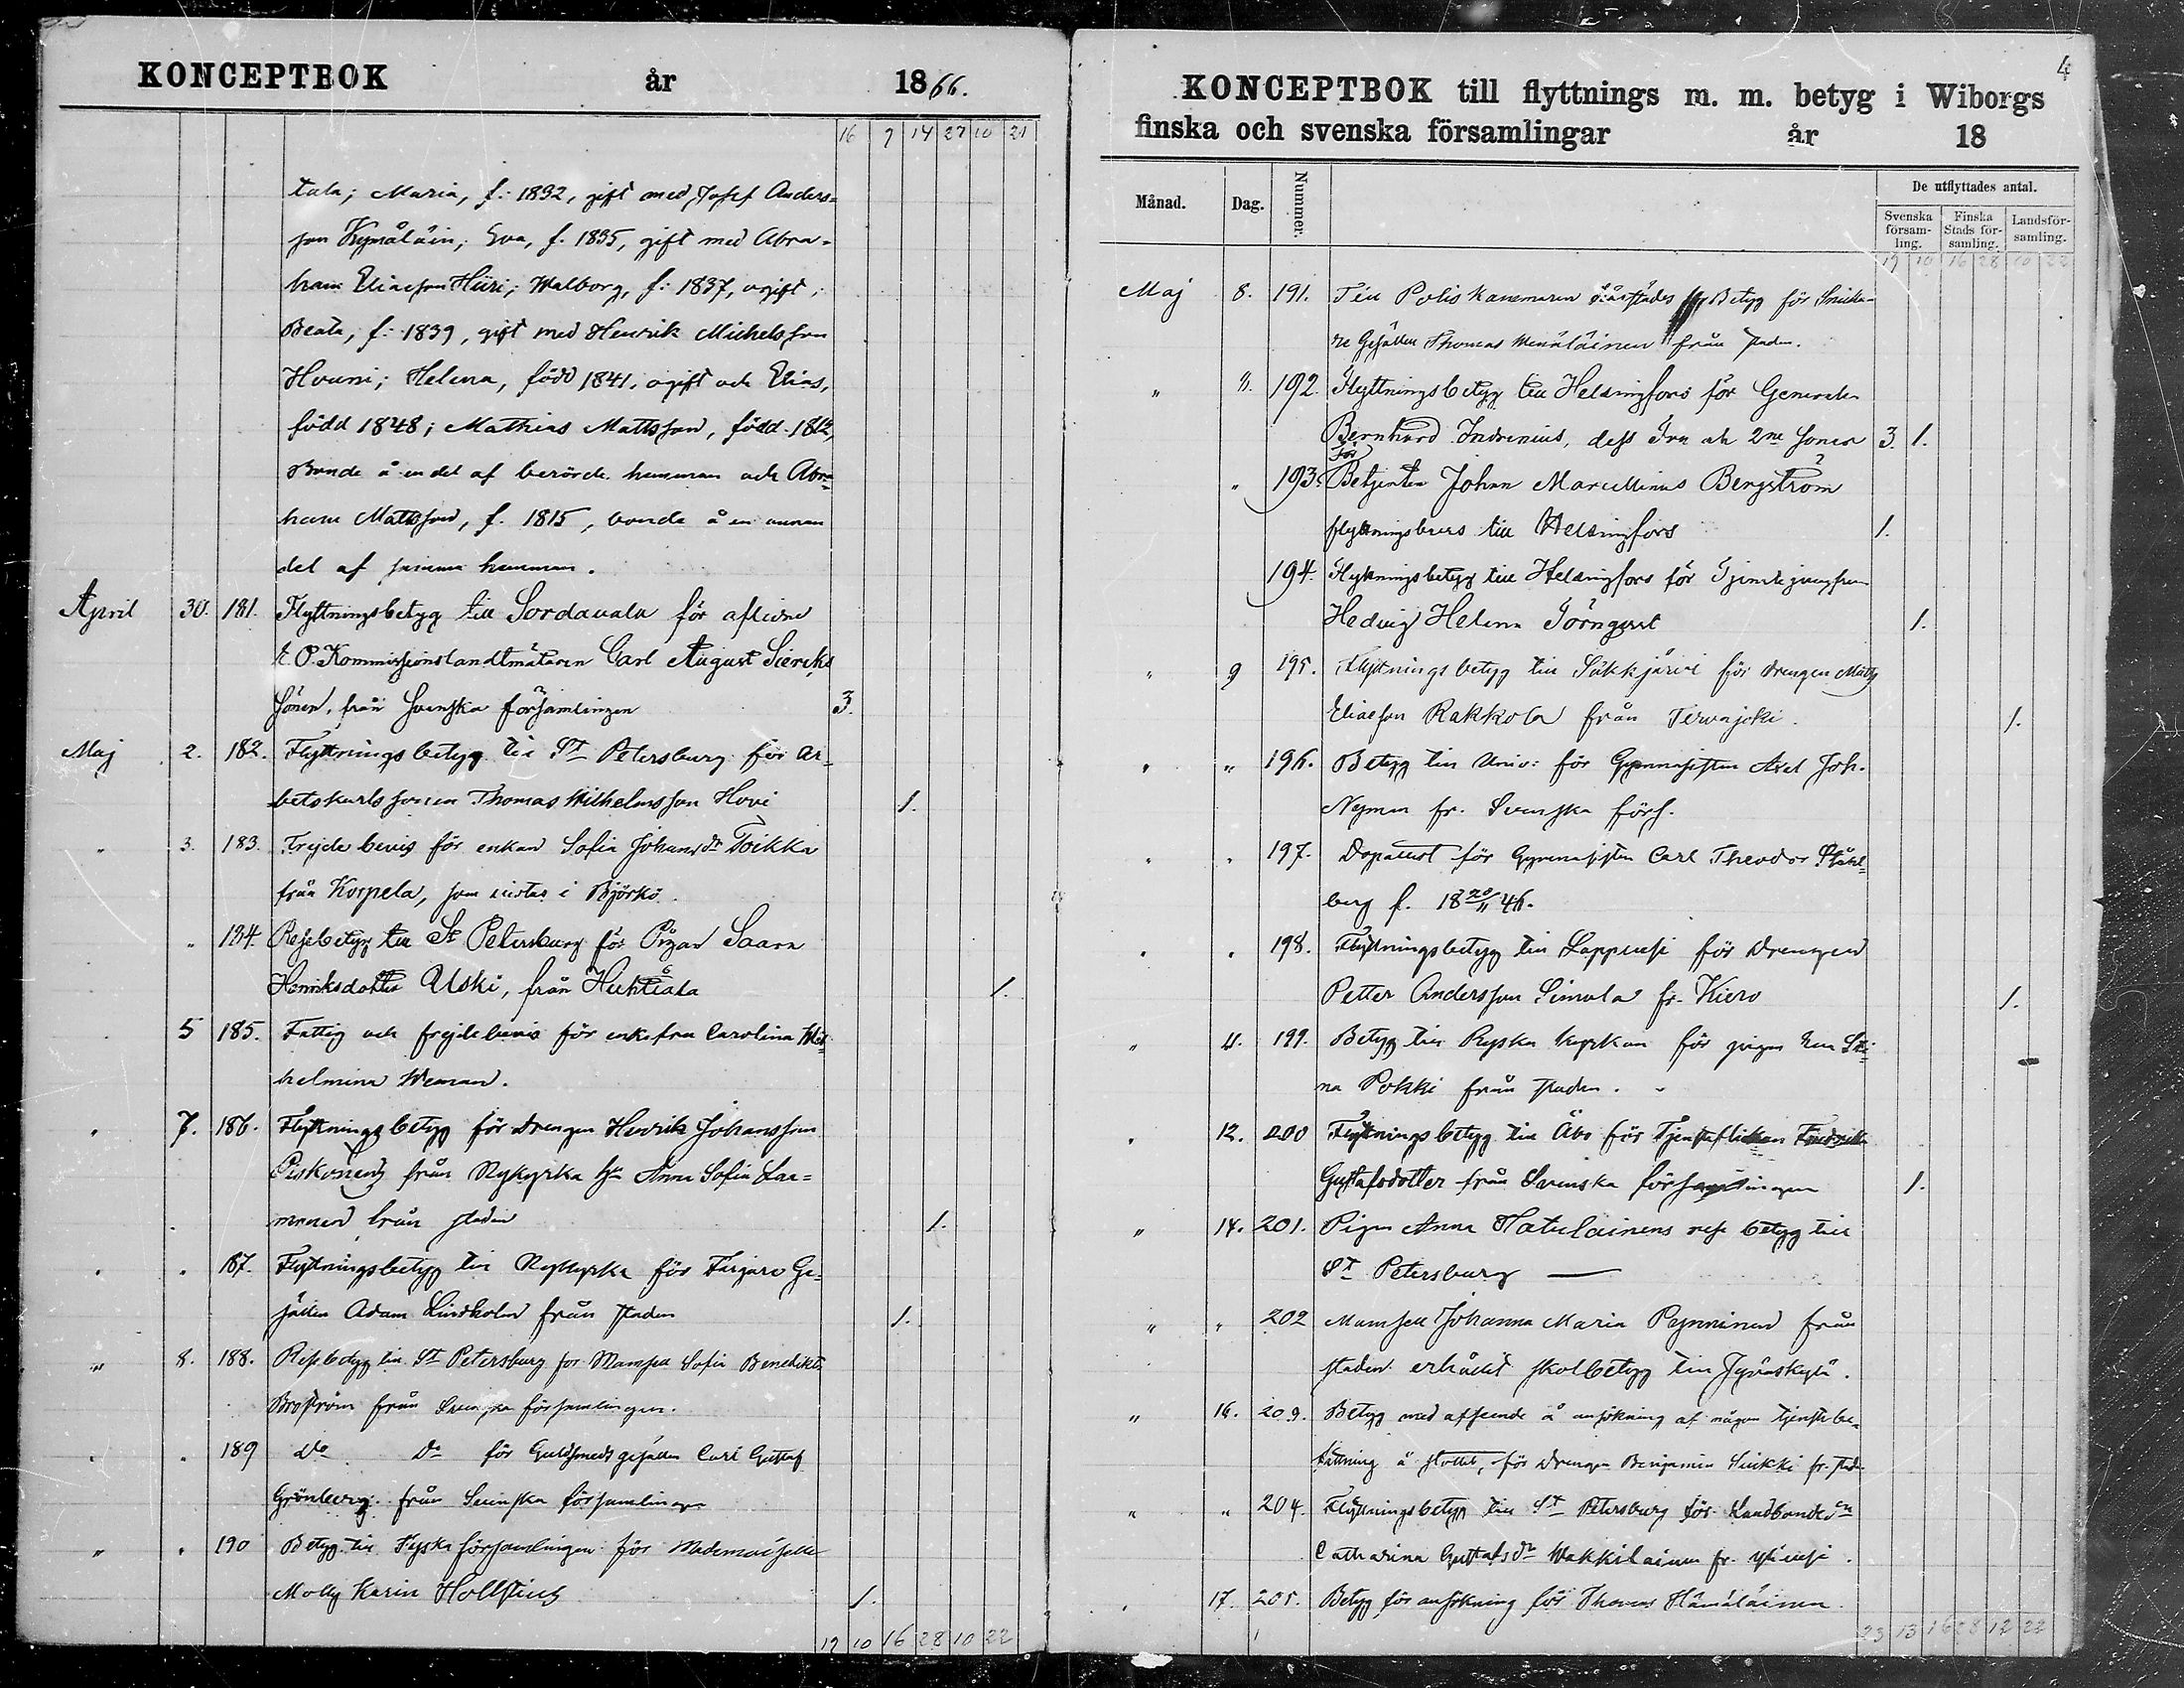 KONCEPTBOK år 1866.
16 9 14 27 10 21
tala; Maria, f. 1832, gift med Josef Anders=
son Kymäläin; Eva, f. 1835, gift med Abra-
ham Eliasson Hüri; Walborg, f. 1837, ogift;
Beata, f. 1839, gift med Henrik Michelsson
Hovni; Helena, född 1841, ogift och Elias,
född 1848; Mathias Mattsson, född 1812,
Bonde å en del af berörde hemman och Abra=
ham Mattsson, f. 1815, bonde å en annan
del af samma hemman.
April 30. 181. Flyttningsbetyg till Sordavala för aflidne
E. O. Kommissionslandtmätaren Carl August Siercks
Söner, från Svenska församlingen 3.
Maj 2. 182. Flyttningsbetyg till St Petersburg för Ar-
betskarlssonen Thomas Wilhelmsson Hovi 1.
" 3. 183. Frejdebevis för enkan Sofia Johansdr Toikka
från Korpela, som vistas i Björkö.
" 184. Resebetyg till St Petersburg för Pigan Saara
Henriksdotter Uski, från Huhtiala 1.
5 185. Fattig och frejdebevis för enkefru Carolina Wil=
helmina Weman.
" 7. 186. Flyttningsbetyg för drengen Henrik Johansson
Piskonen från Nykyrka Anna Sofia
från staden 1.
" " 187. Flyttningsbetyg till Nykyrka för Färgare Ge=
sällen Adam Lindholm från staden 1.
" 8. 188. Resebetyg till St Petersburg för Mamsell Sofia Benedikta
Broström från Svenska församlingen.
" " 189 Do Do för Guldsmedsgesällen Carl Gustaf
Grönberg från Svenska församlingen
" " 190 Betyg till Tyska församlingen för Mademoiselle
Molly Karin Hollstius 1.
17 10 16 28 10 22
4
KONCEPTBOK till flyttnings m. m. betyg i Wiborgs
finska och svenska församlingar år 18
Månad. Dag. Nummer. De utflyttades antal.
Svenska försam-ling. Finska Stads för-samling. Landsför-samling.
17 10 16 28 10 22
Maj 8. 191. Till Polis Kammaren härstädes Betyg för Snicka-
re Gesällen Thomas från staden.
" 8. 192. Flyttningsbetyg till Helsingfors för Generalen
Bernhard Indrenius, dess Fru och 2ne Söner 3. 1.
För
" 193. Betjenten Johan Marcellinus Bergström
flyttningsbevis till Helsingfors 1.
194. Flyttningsbetyg till Helsingfors för Tjenstejungfrun
Hedvig Helena Törnqvist 1.
" 9 195. Flyttningsbetyg till Säkkjärvi för drengen Matts
Eliasson Rakkola från Tervajoki. 1.
" " 196. Betyg till Univ: för Gymnasisten Axel Joh.
Nyman fr. Svenska förs.
" " 197. Dopattest för Gymnasisten Carl Theodor Ståhl=
berg f. 18 20/11 46.
" " 198. Flyttningsbetyg till Lappvesi för Drengen
Petter Andersson Simola fr. Kiero 1.
" 11. 199. Betyg till Ryska Kyrkan för pigan Eva Sti=
na Pokki från staden.
" 12. 200 Flyttningsbetyg till Åbo för Tjensteflickan Fredrika
Gustafsdotter från Svenska församlingen 1.
" 14. 201. Pigan Anna Hatulainens rese betyg till
St Petersburg —
" " 202 Mamsell Johanna Maria Pynninen från
staden erhållit skolbetyg till Jyväskylä.
" 16. 203. Betyg med afseende å ansökning af någon tjenste be-
fattning å slottet, för drengen Benjamin Suikki fr. stad.
" " 204. Flyttningsbetyg till St Petersburg för Landbonde
Catharina Gustafsdr Wakkilainen fr.
" 17. 205. Betyg för ansökning för Thomas Hämäläinen.
23 13 16 28 12 22